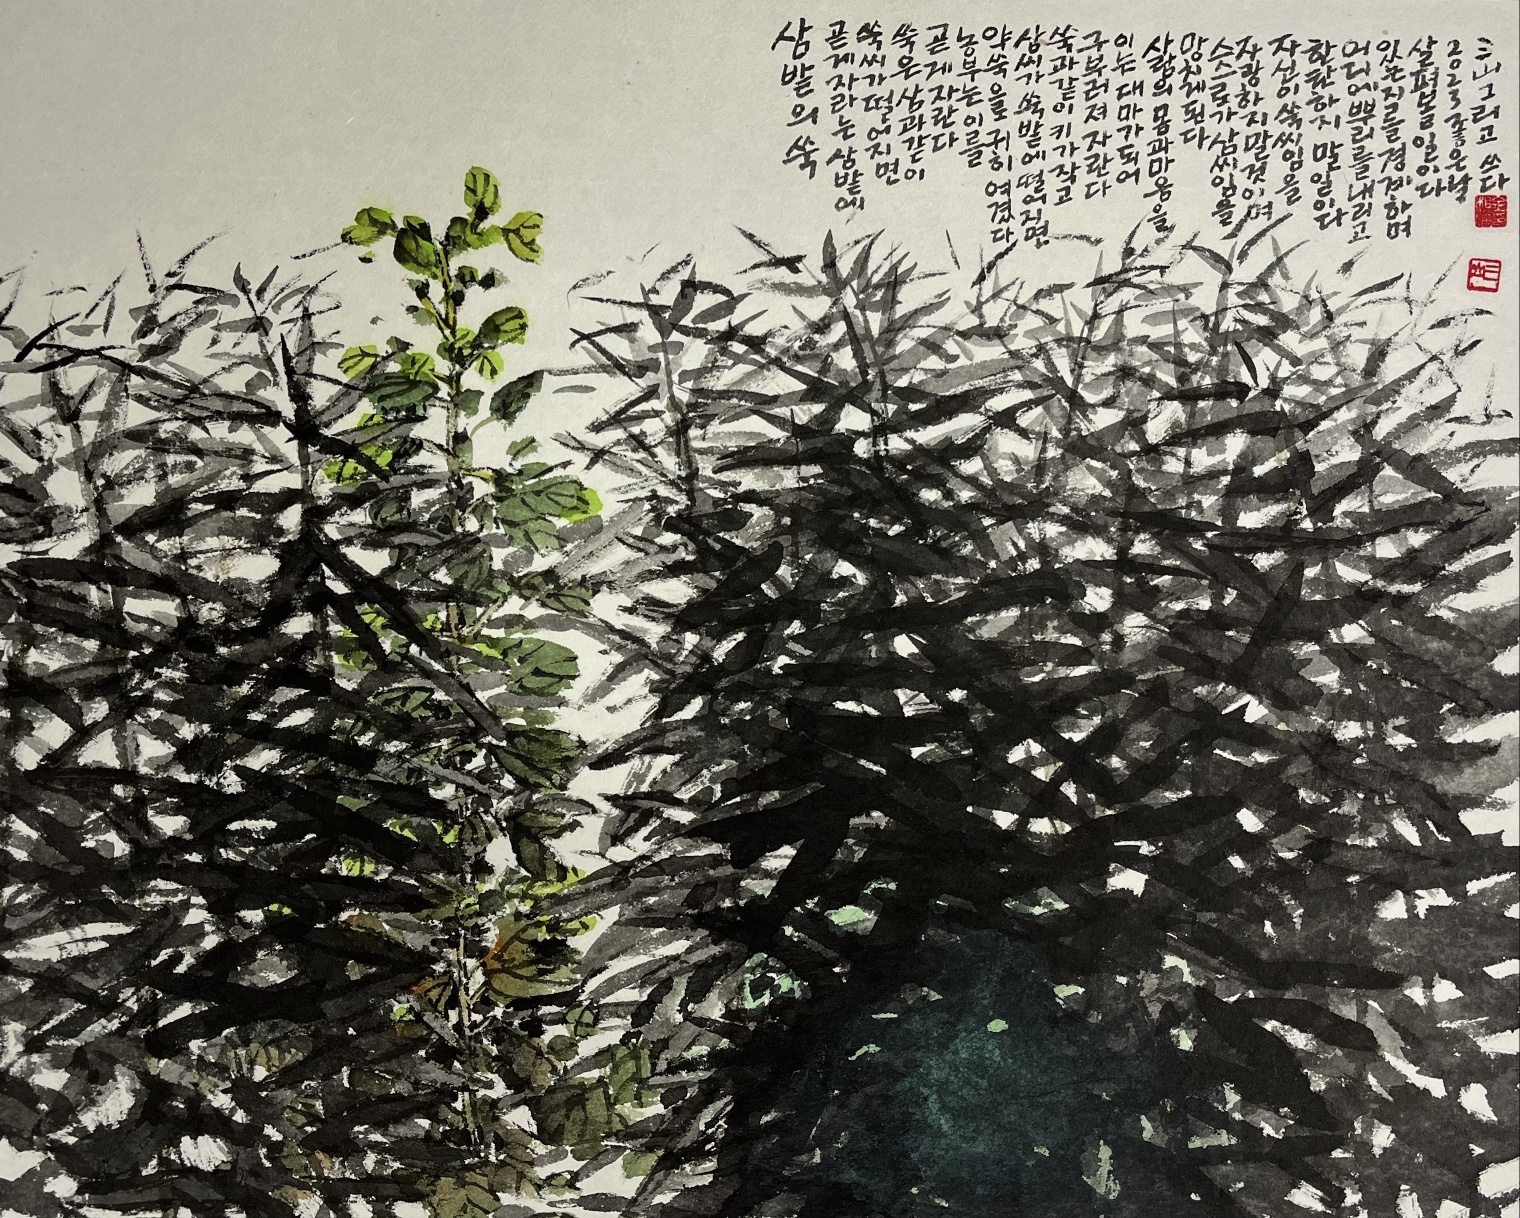 삼밭의 쑥
곧게 자라는 삼밭에
쑥씨가 떨어지면
쑥은 삼과 같이
곧게 자란다
농부는 이를
약쑥으로 귀히 여겼다
삼씨가 쑥밭에 떨어지면
쑥과 같이 키가 작고
구부러져 자란다
이는 대마가 되어
삶의 몸과 마음을
망치게 된다
스스로가 삼씨임을
자랑하지 말 것이며
자신이 쑥씨임을
한탄하지 말 일이다
어디에 뿌리를 내리고
있는지를 경계하며
살펴볼 일이다
2023 좋은날
三山 그리고 쓰다